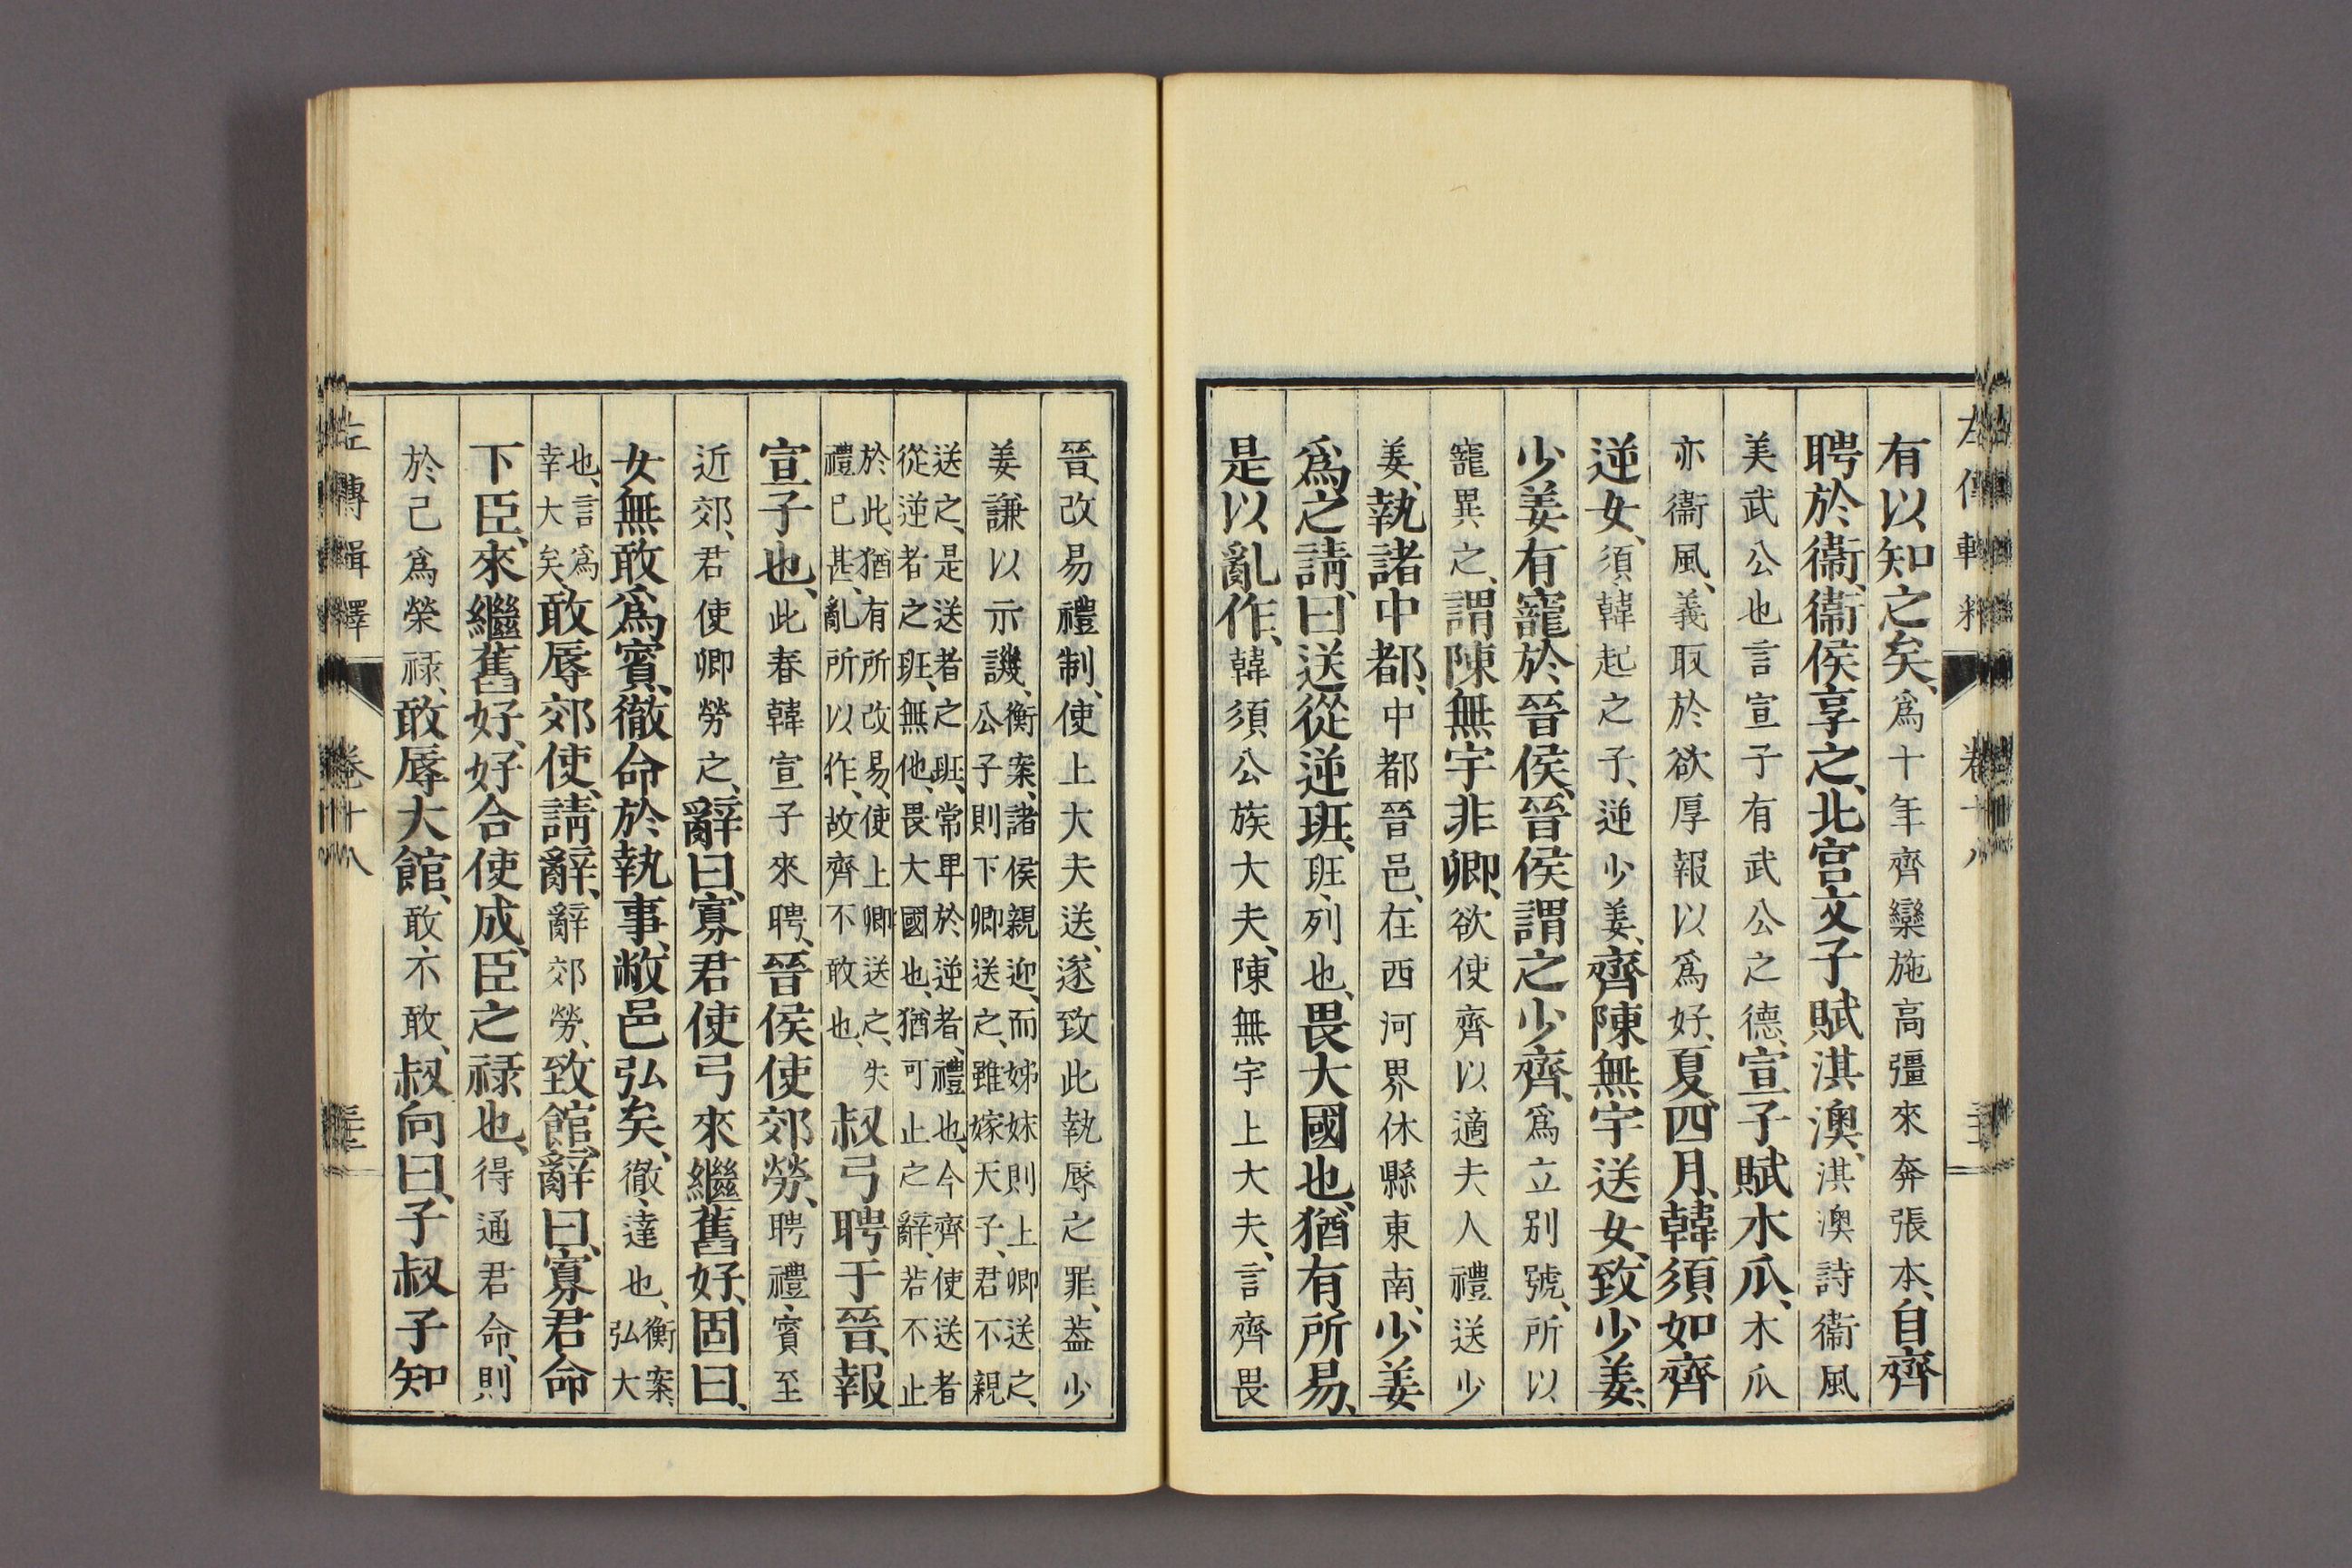 有以知之矣、爲十年齊欒施高彊來奔張本、自齊
聘於衞、衞侯享之、北宮文子賦淇澳、淇澳詩衞風
美武公也言宣子有武公之德、宣子賦木瓜、木瓜
亦衞風、義取於欲厚報以爲好、夏四月、韓須如齊
逆女、須韓起之子、逆少姜、齊陳無宇送女、致少姜、
少姜有寵於晉侯、晉侯謂之少齊、爲立别號、所以
寵異之、謂陳無宇非卿、欲使齊以適夫人禮送少
姜、執諸中都、中都晉邑、在西河界休縣東南、少姜
爲之請、曰送從逆班、班列也、畏大國也、猶有所易、
是以亂作、韓須公族大夫、陳無宇上大夫、言齊畏
晉、改易禮制、使上大夫送、遂致此執辱之罪、葢少
姜謙以示譏、衡案、諸侯親迎、而姊妹則上卿送之、
公子則下卿送之、雖嫁天子、君不親
送之、是送者之班、常卑於逆者、禮也、今齊使送者
從逆者之班、無他、畏大國也、猶可止之辭、若不止
於此、猶有所改易、使上卿送之、失
禮已甚、亂所以作、故齊不敢也、
叔弓聘于晉、報
宣子也、此春韓宣子來聘、晉侯使郊勞、聘禮、賓至
近郊、君使卿勞之、辭曰、寡君使弓來繼舊好、固曰、
女無敢爲賓、徹命於執事、敝邑弘矣、徹、達也、衡案、
弘大
也、言爲
幸大矣、
敢辱郊使、請辭、辭郊勞、致館、辭曰、寡君命
下臣、來繼舊好、好合使成、臣之祿也、得通君命、則
於己爲榮祿、敢辱大館、敢、不敢、叔向曰、子叔子知
左傳輯釋
卷十八